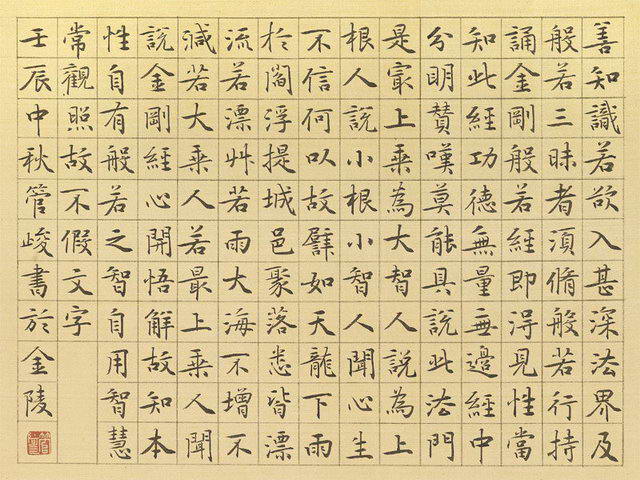 善知識若欲入甚深法界及
般若三昧者須脩般若行持
誦金剛般若經即淂見性當
知此經功德無量無邊經中
分明賛嘆莫能具說此法門
是㝡上乘為大智人說為上
根人說小根小智人聞心生
不信何以故譬如天龍下雨
於閻浮提城邑聚落悉皆漂
流若漂艸若雨大海不增不
減若大乘人若最上乘人聞
說金剛經心開悟解故知本
性自有般若之智自用智慧
常觀照故不假文字
壬辰中秋管峻書於金陵